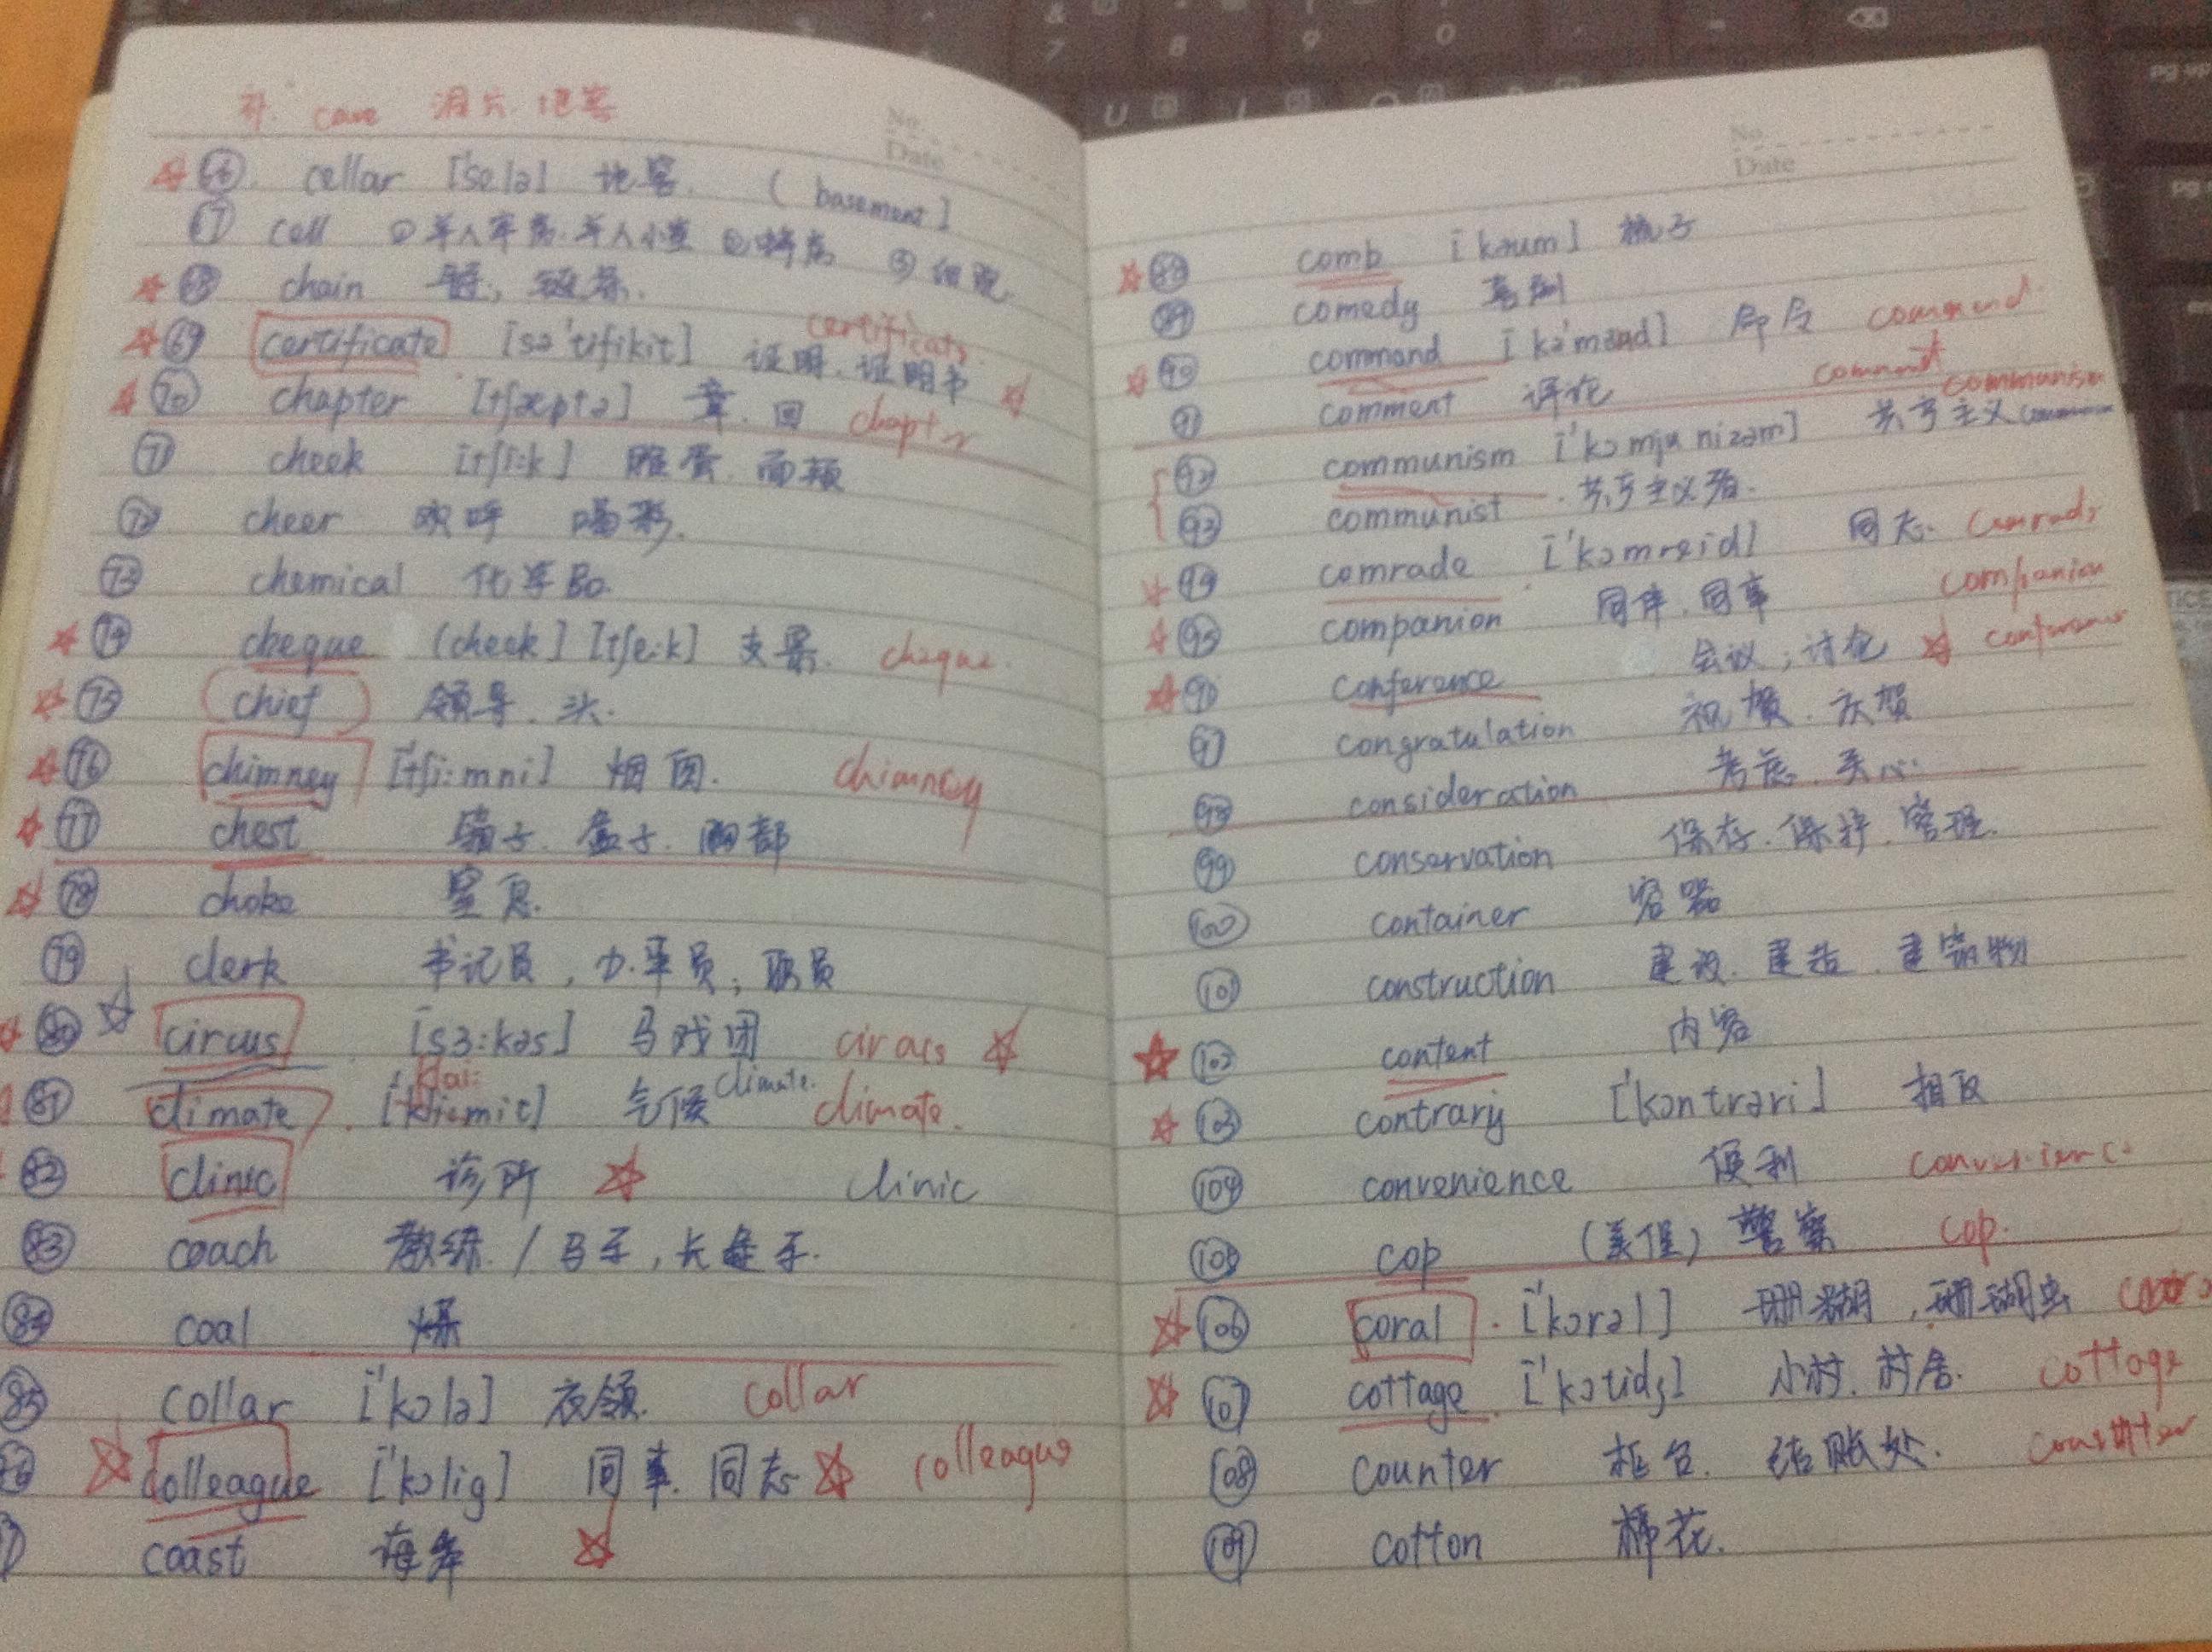 补. cave 洞穴. 地窖
No.
Date
66. cellar ['selə] 地窖. (basement]
67 cell ① 单人牢房. 单人小室 ② 蜂房 ③ 细胞.
68 chain 链, 链条.
69 certificate [sə'tifikit] 证明. 证明书 certificate.
70 chapter [tʃæptə] 章. 回 chapter
71 cheek [tʃi:k] 脸蛋. 面颊
72 cheer 欢呼 喝彩.
73 chemical 化学的.
74 cheque (check] [tʃe:k] 支票. cheque.
75 chief 领导. 头.
76 chimney [tʃi:mni] 烟囱. chimney
77 chest 箱子. 盒子. 胸部
78 choke 窒息.
79 clerk 书记员, 办事员; 职员
80 circus [sɜ:kəs] 马戏团 circus
81 climate. 气候 climate. climate.
82 clinic 诊所 clinic
83 coach 教练. / 马车, 长途车.
84 coal 煤
85 collar ['kɔlə] 衣领. collar
86 colleague ['kɔlig] 同事. 同志 colleague
coast 海岸
No.
Date
88 comb [kəum] 梳子
89 comedy 喜剧
90 command [kə'mənd] 命令 command
91 comment 评论 comment
92 communism ['kɔmju nizəm] 共产主义 communism
93 communist. 共产主义者.
94 comrade ['kɔmreid] 同志. comrade
95 companion 同伴. 同事 companion
96 conference 会议; 讨论 conference
97 congratulation 祝贺. 庆贺
98 consideration 考虑. 关心.
99 conservation 保存. 保护. 管理.
100 container 容器
101 construction 建设. 建造. 建筑物
102 content 内容
103 contrary ['kəntrəri] 相反
104 convenience 便利 convenience
105 cop (美俚) 警察 cop.
106 coral. ['kɔrəl] 珊瑚, 珊瑚虫
107 cottage. ['kɔtidʒ] 小村. 村居. cottage
108 counter 柜台. 结账处.
109 cotton 棉花.